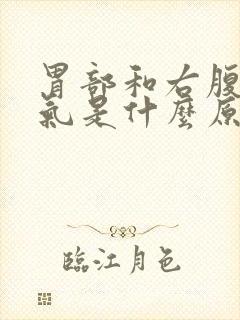 胃部和右腹
氣是什麼原
臨江月色